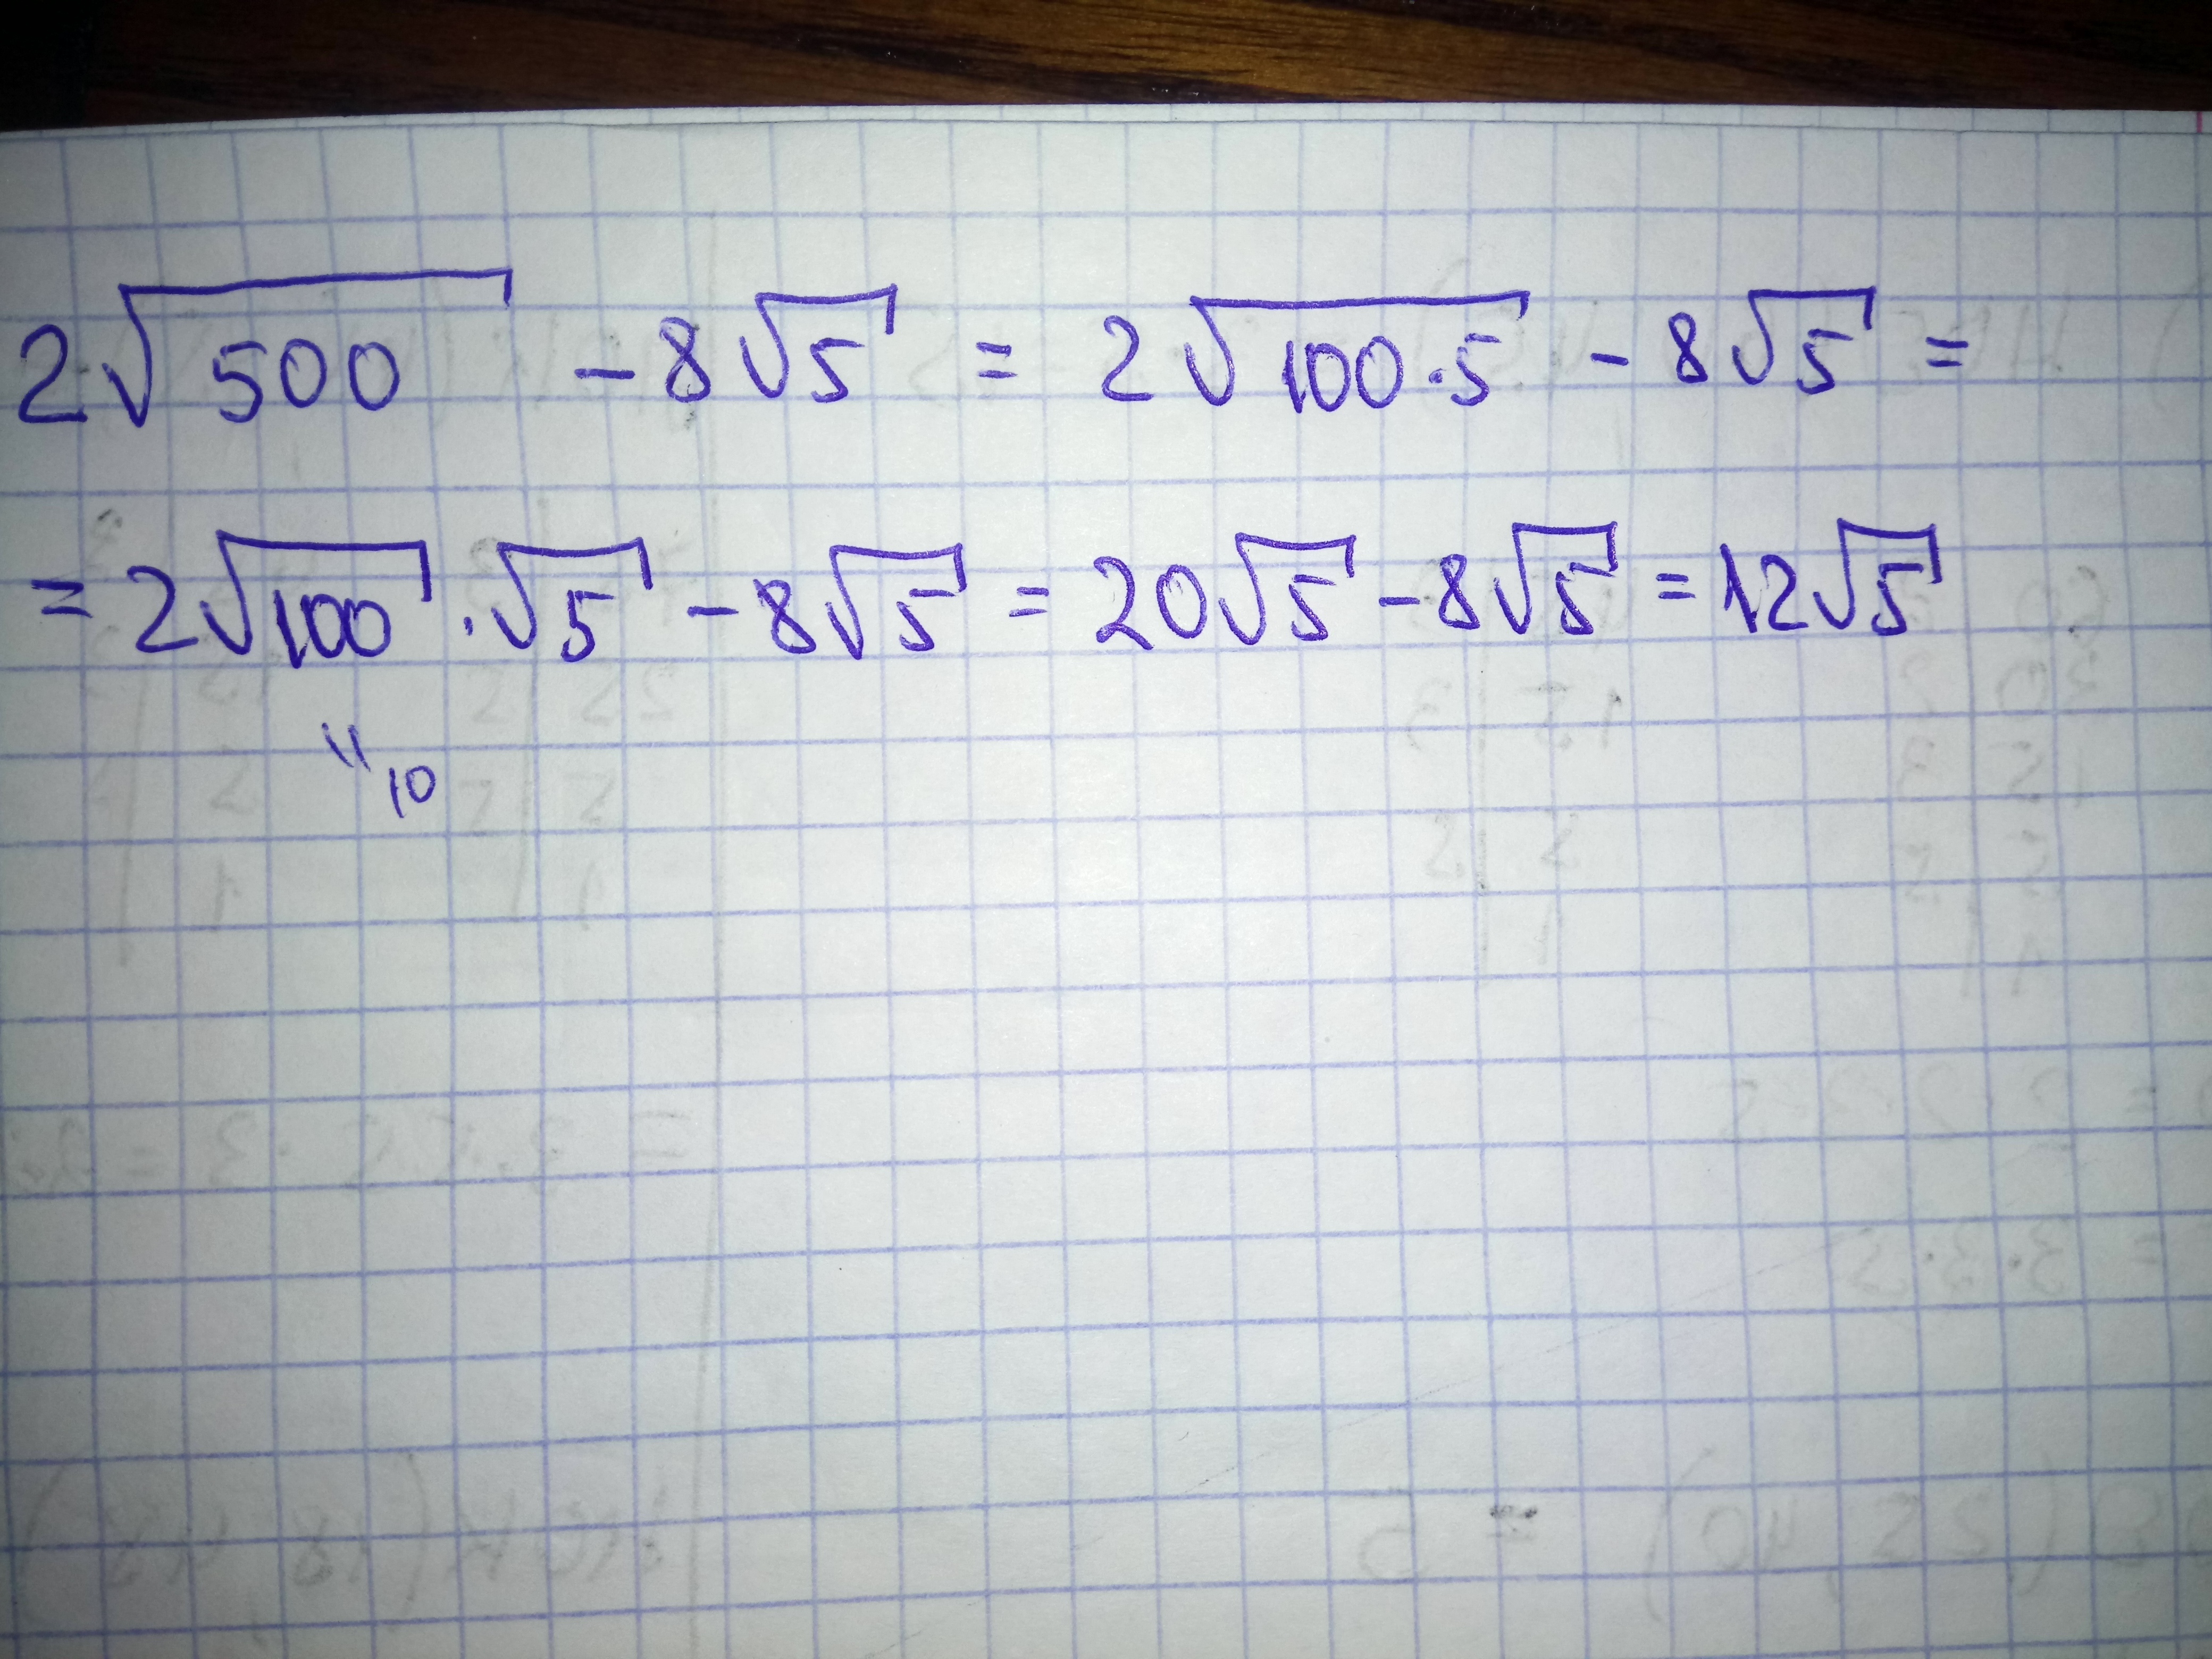 2√500 - 8√5 = 2√100·5 - 8√5 =
= 2√100 · √5 - 8√5 = 20√5 - 8√5 = 12√5
" 10